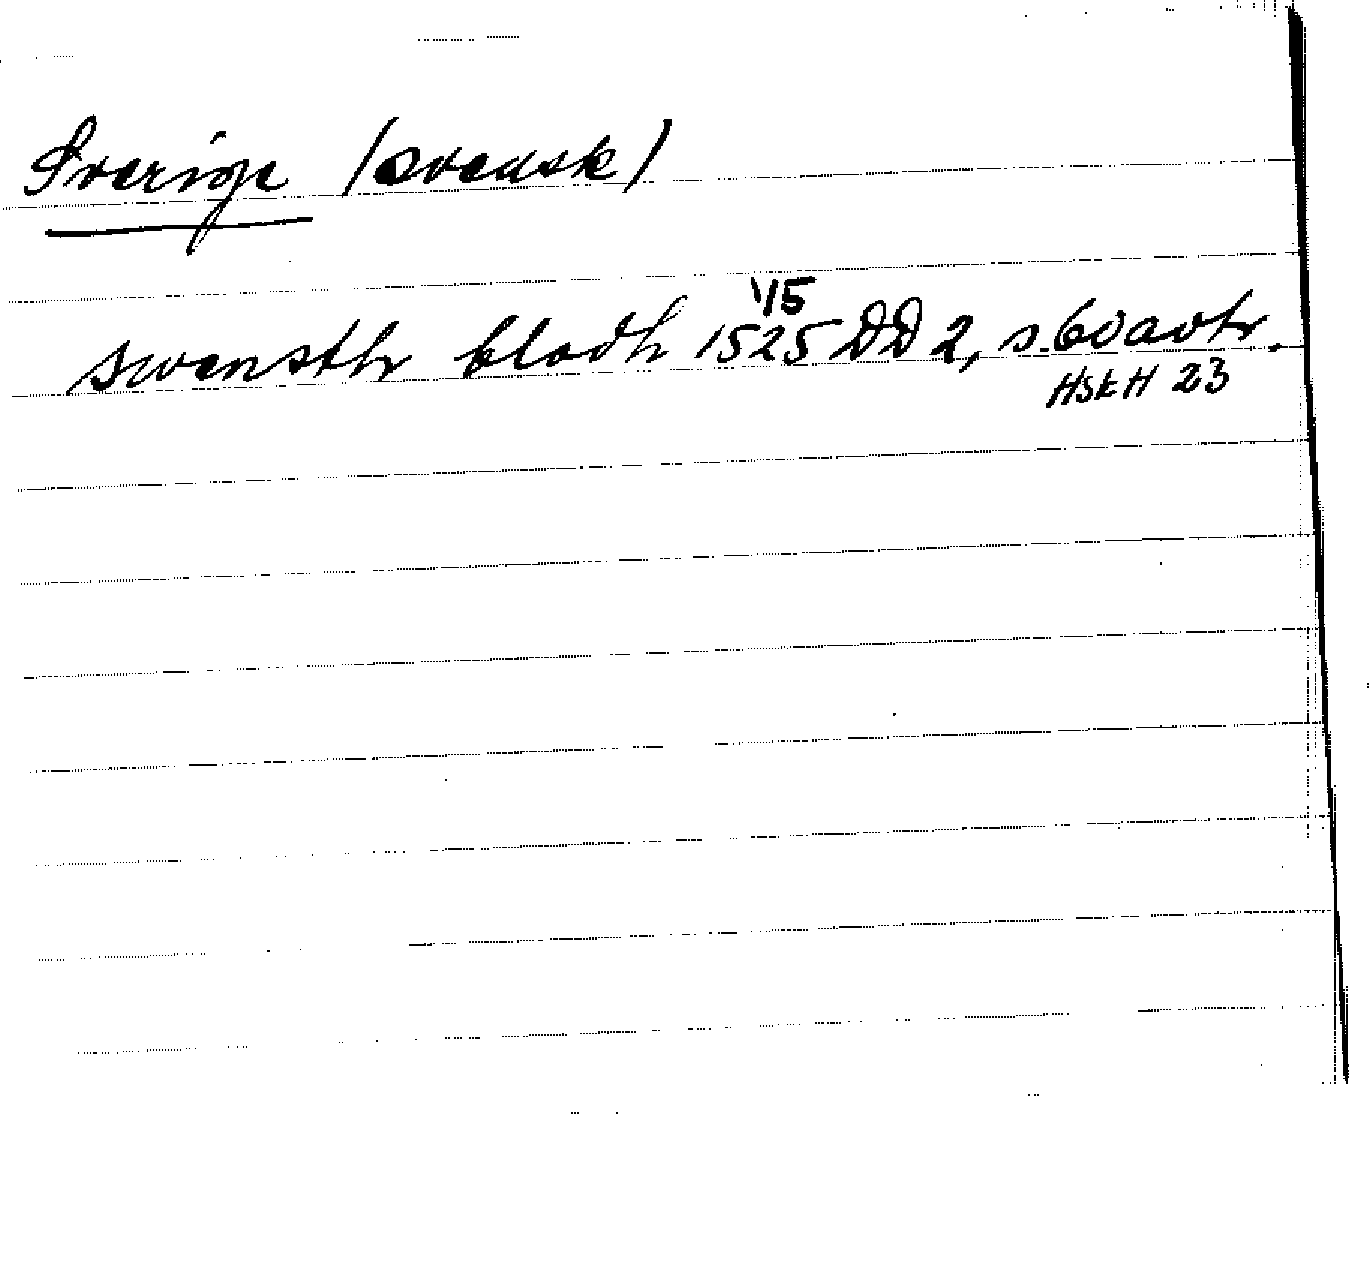 Sverige (svensk)
1/5
swensth blodh 1525 DD 2, s. 60 avtr.
HSkH 23